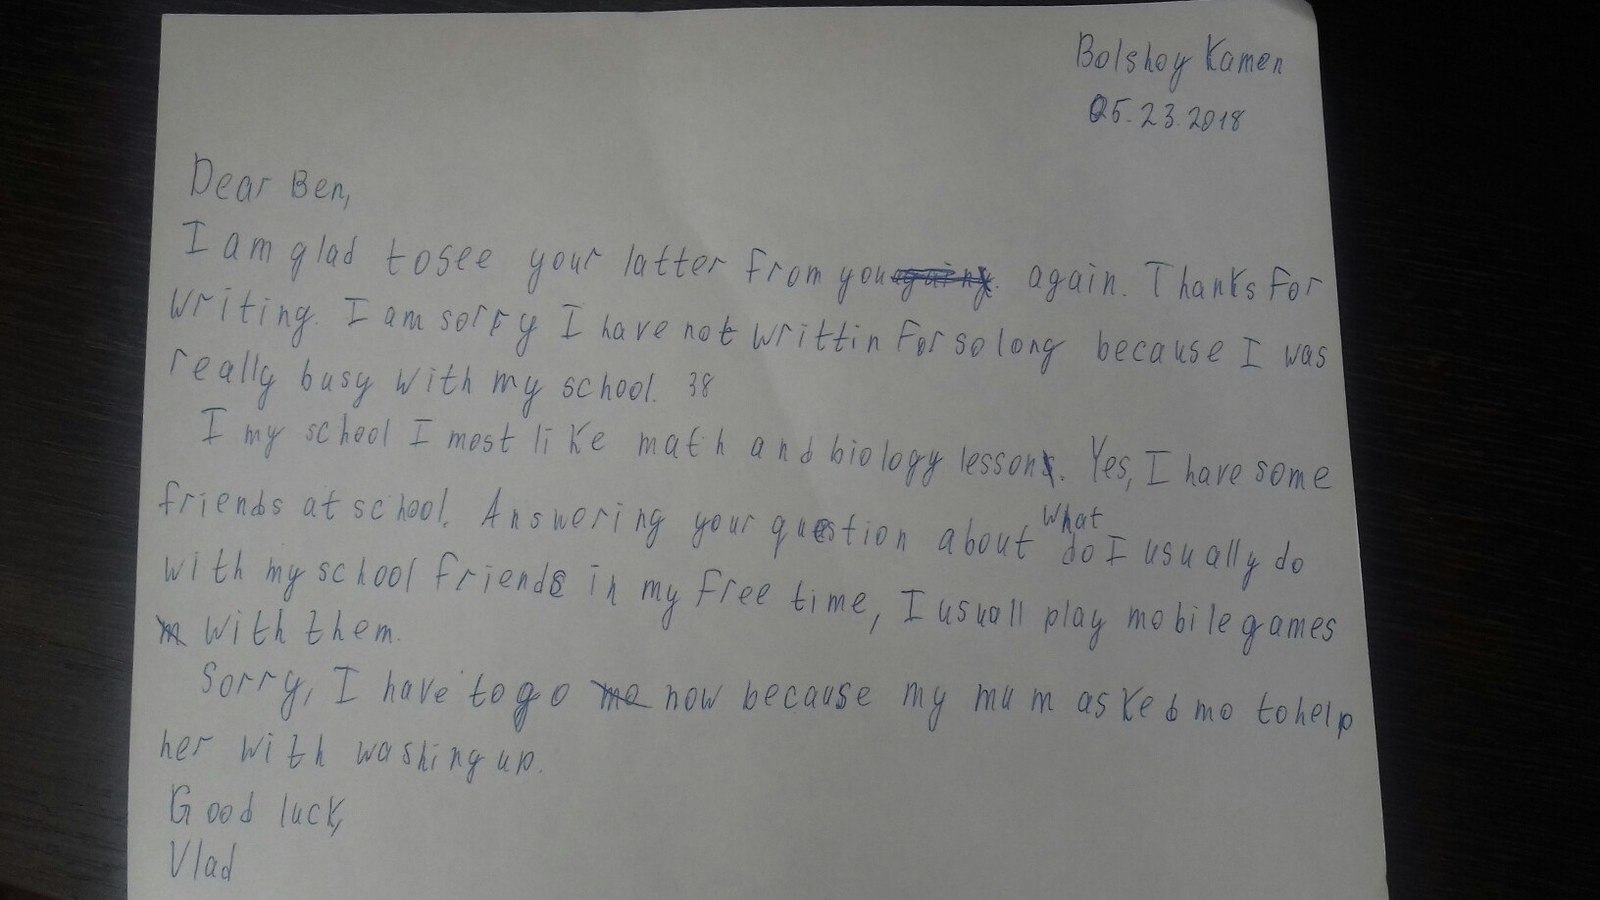 Bolshoy Kamen
05.23.2018
Dear Ben,
I am glad to see your latter from you again. Thanks for
writing. I am sorry I have not writtin for so long because I was
really busy with my school. 38
I my school I most like math and biology lesson. Yes, I have some
friends at school. Answering your question about what do I usually do
with my school friends in my free time, I usuall play mobile games
with them.
Sorry, I have to go now because my mum asked mo to help
her with washing up.
Good luck,
Vlad